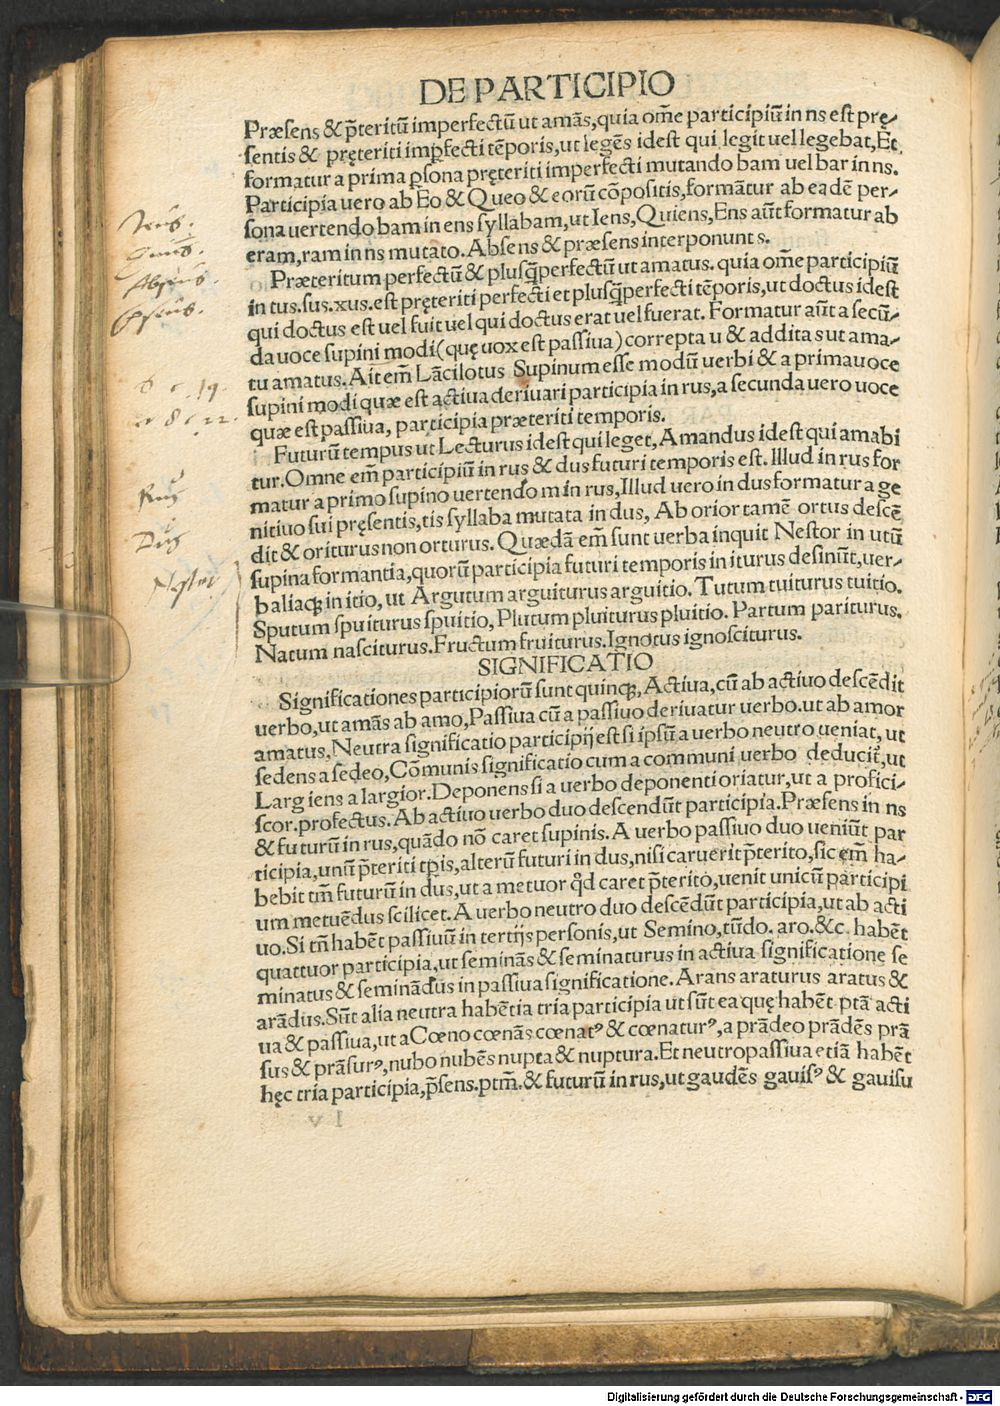 DE PARTICIPIO
Præsens & p̃teritũ imperfectũ ut amãs,quia om̃e participiũ in ns est prę-
sentis & pręteriti imꝑfecti tẽporis,ut legẽs idest qui legit uel legebat,Et
formatur a prima ꝑsona pręteriti imperfecti mutando bam uel bar in ns.
Participia uero ab Eo & Queo & eorũ cõpositis,formãtur ab eadẽ per-
sona uertendo bam in ens syllabam,ut Iens,Quiens,Ens aũt formatur ab
eram,ram in ns mutato.Absens & præsens interponunt s.
Iens.
Absens.
Præteritum perfectũ & plusq̃perfectũ ut amatus. quia om̃e participiũ
in tus.sus.xus.est pręteriti perfecti et plusq̃perfecti tẽporis,ut doctus idest
qui doctus est uel fuit uel qui doctus erat uel fuerat. Formatur aũt a secũ-
da uoce supini modi(quę uox est passiua)correpta u & addita s ut ama-
tu amatus. Ait em̃ Lãcilotus Supinum esse modũ uerbi & a prima uoce
supini modi quæ est actiua deriuari participia in rus,a secunda uero uoce
quæ est passiua, participia præteriti temporis.
Futurũ tempus ut Lecturus idest qui leget, Amandus idest qui amabi
tur.Omne em̃ participiũ in rus & dus futuri temporis est. Illud in rus for
matur a primo supino uertendo m in rus,Illud uero in dus formatur a ge
nitiuo sui pręsentis,tis syllaba mutata in dus, Ab orior tamẽ ortus descẽ
dit & oriturus non orturus. Quædã em̃ sunt uerba inquit Nestor in utũ
supina formantia,quorũ participia futuri temporis in iturus desinũt,uer-
baliaqꝫ in itio, ut Argutum arguiturus arguitio. Tutum tuiturus tuitio.
Sputum spuiturus spuitio, Plutum pluiturus pluitio. Partum pariturus.
Natum nasciturus.Fructum fruiturus.Ignotus ignosciturus.
Nestor
SIGNIFICATIO
Significationes participiorũ sunt quinqꝫ, Actiua,cũ ab actiuo descẽdit
uerbo,ut amãs ab amo,Passiua cũ a passiuo deriuatur uerbo.ut ab amor
amatus,Neutra significatio participij est si ipsũ a uerbo neutro ueniat, ut
sedens a sedeo,Cõmunis significatio cum a communi uerbo deducit̃,ut
Largiens a largior.Deponens si a uerbo deponenti oriatur,ut a profici-
scor.profectus. Ab actiuo uerbo duo descendũt participia.Præsens in ns
& futurũ in rus,quãdo nõ caret supinis. A uerbo passiuo duo ueniũt par
ticipia,unũ p̃teriti tp̃is,alterũ futuri in dus,nisi caruerit p̃terito,sic em̃ ha-
bebit tm̃ futurũ in dus,ut a metuor qd̃ caret p̃terito,uenit unicũ participi
um metuẽdus scilicet. A uerbo neutro duo descẽdũt participia,ut ab acti
uo. Si tñ habẽt passiuũ in tertijs personis,ut Semino,tũdo. aro.&c. habẽt
quattuor participia,ut seminãs & seminaturus in actiua significatione se
minatus & seminãdus in passiua significatione. Arans araturus aratus &
arãdus.Sũt alia neutra habẽtia tria participia ut sũt ea quę habẽt ptã acti
ua & passiua,ut a Cœno cœnãs cœnatꝰ & cœnaturꝰ,a prãdeo prãdẽs prã
sus & prãsurꝰ,nubo nubẽs nupta & nuptura.Et neutropassiua etiã habẽt
hęc tria participia,p̃sens.ptm̃.& futurũ in rus,ut gaudẽs gauisꝰ & gauisu
Digitalisierung gefördert durch die Deutsche Forschungsgemeinschaft - DFG